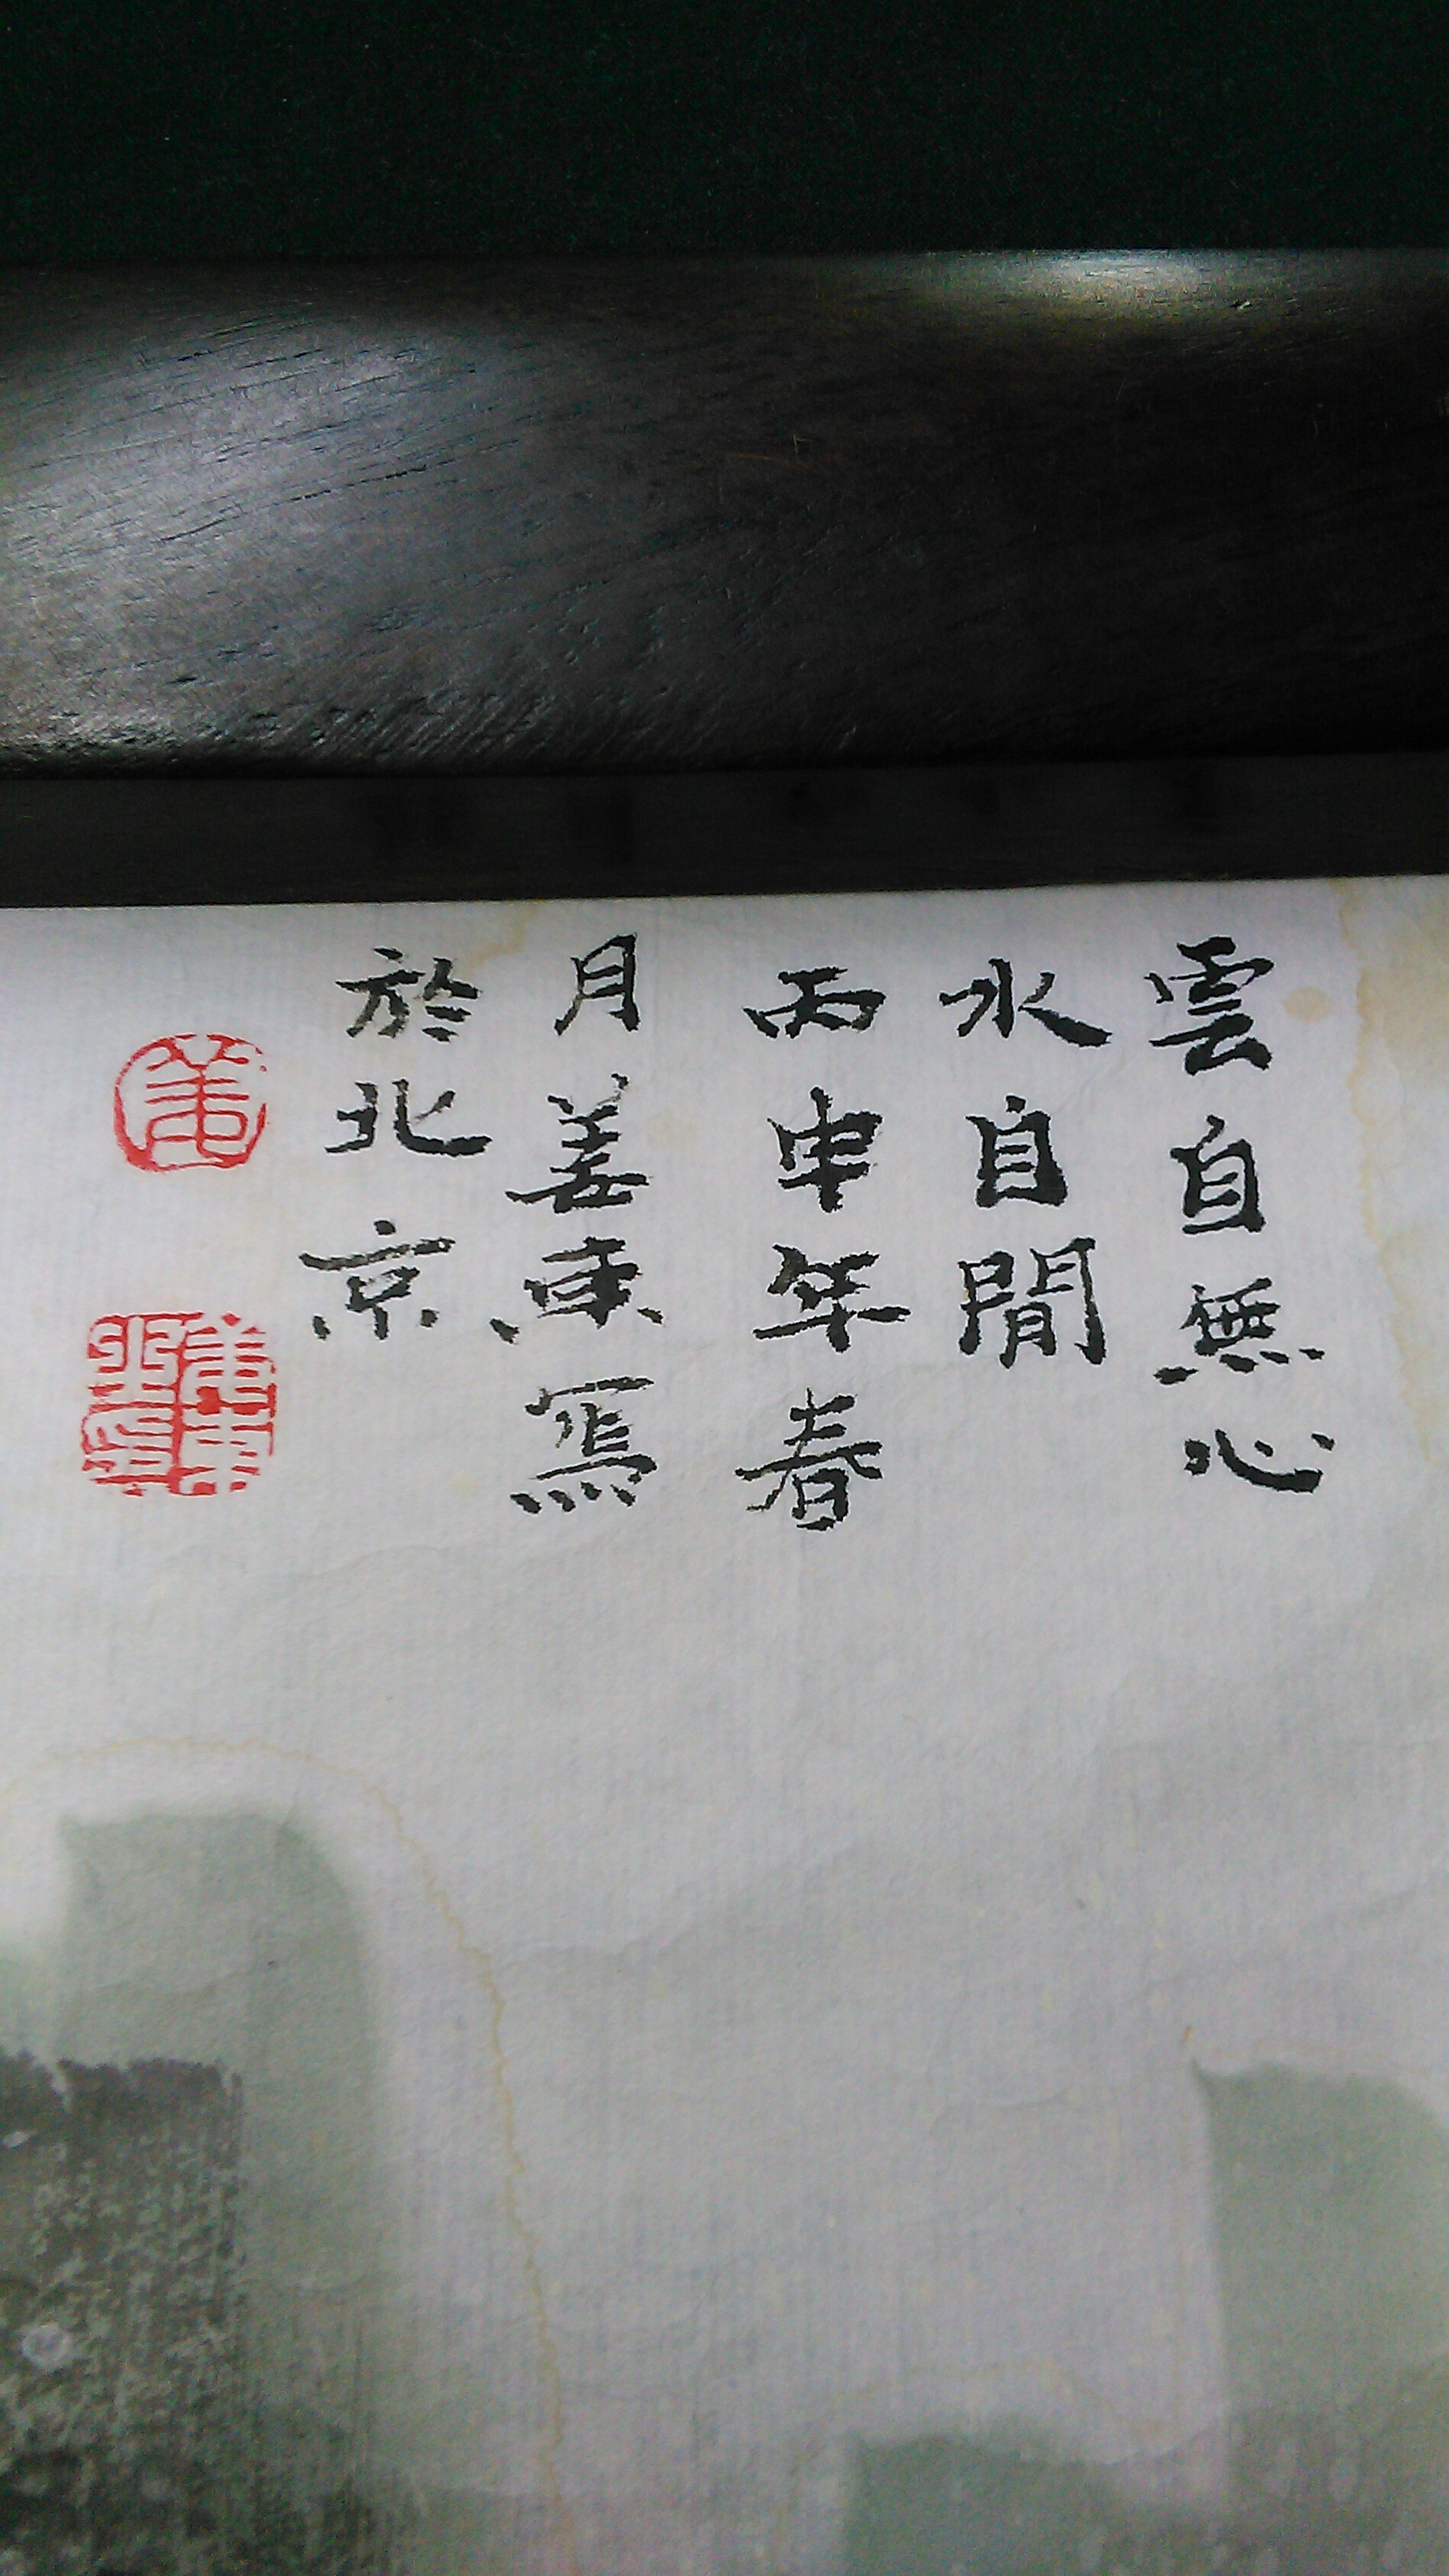 雲自無心
水自閒
丙申年春
月姜東寫
於北京